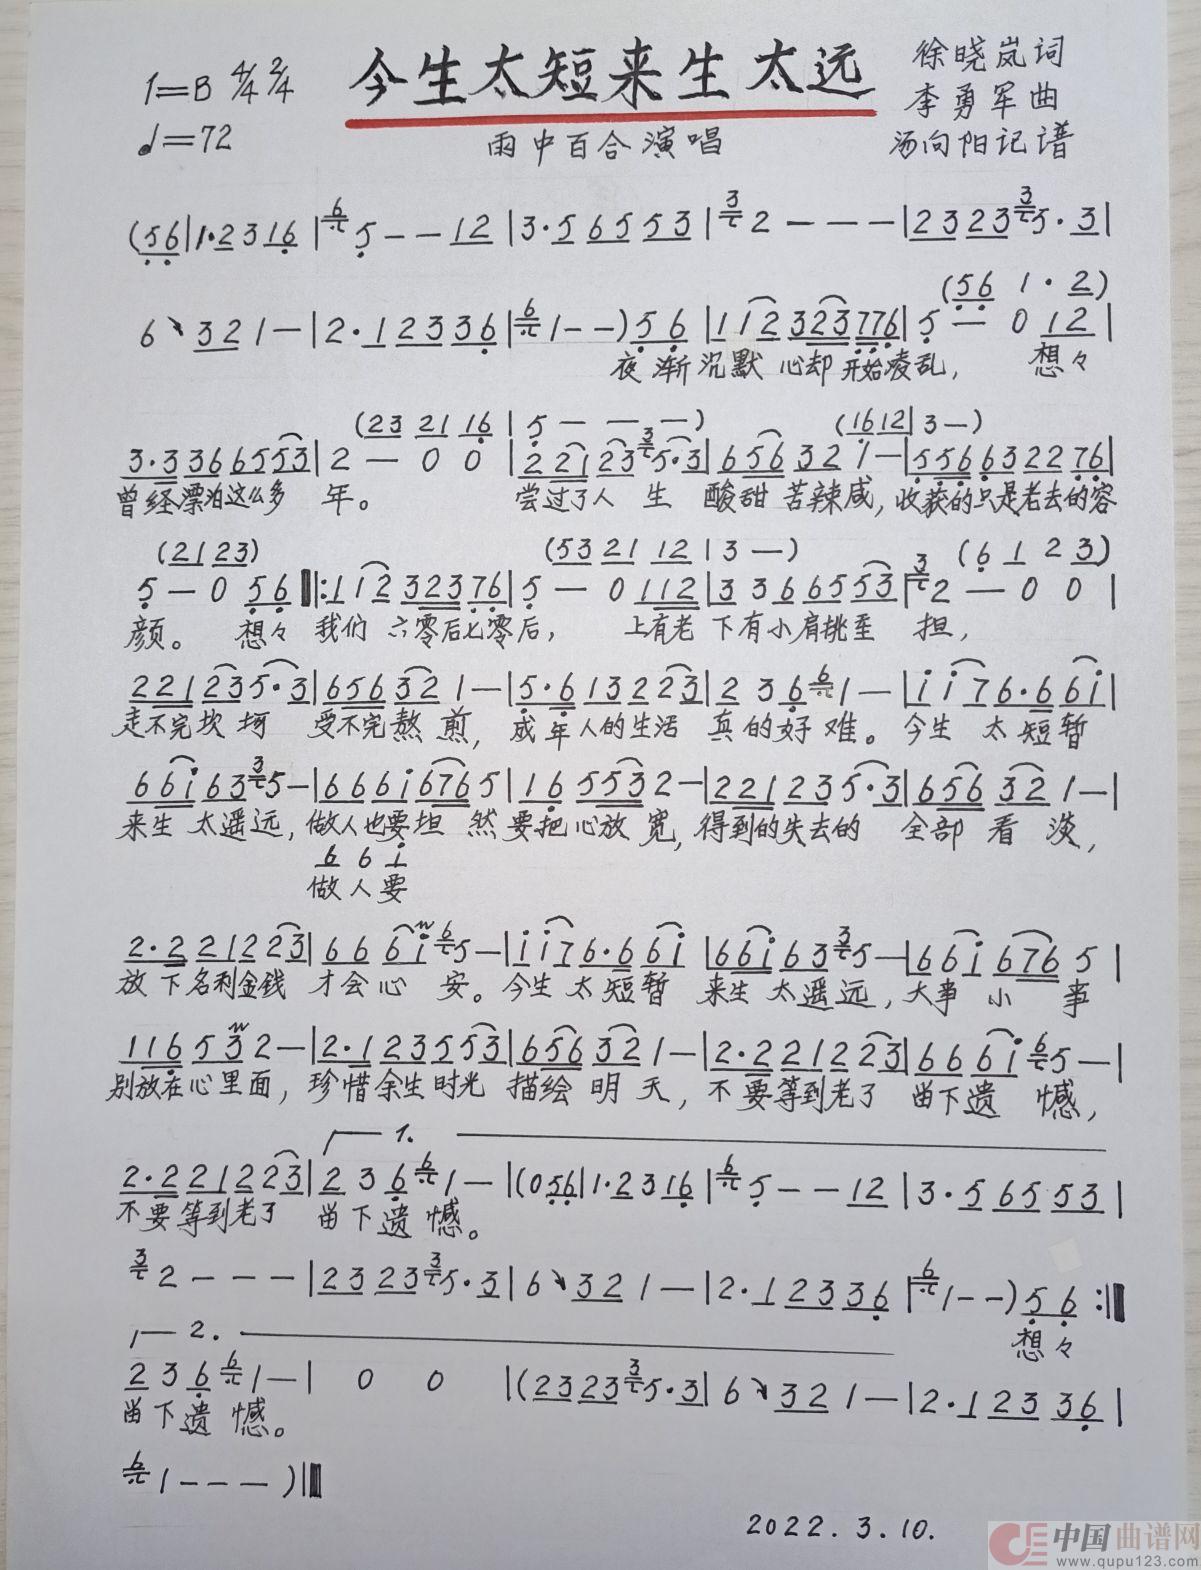 1=B 4/4 2/4
今生太短来生太远
徐晓岚词
♩=72
李勇军曲
雨中百合演唱
汤向阳记谱
(56|1·23 16|5--12|3·56553|2---|23235·3|
(56 1·2)
6 321-|2·1 2336|1--)56|112 323776|5-0 12|
夜渐沉默 心却开始凌乱, 想々
(23 21 16|5---) (1612|3-)
3·3366553|2-00|221235·3|656321-|5566322 76|
曾经漂泊这么多 年。 尝过了人 生 酸甜苦辣咸, 收获的只是老去的容
(2123) (53 21 12|3-) (6 1 2 3)
5-0 56‖:112 32376|5-0 112|33 66553|2-00|
颜。 想々 我们 六零后七零后, 上有老 下有小肩挑至 担,
221235·3|656321-|5·6132223|2361-|1176·661|
走不完坎坷 受不完熬煎, 成年人的生活 真的好难。 今生 太短暂
661635-|66616765|165532-|221235·3|656321-|
来生 太遥远, 做人也要坦 然 要把心放宽, 得到的失去的 全部看淡,
6 6 1
做人要
2·2212223|66615-|1176·661|661635-|6616765|
放下名利金钱 才会心 安。 今生 太短暂 来生 太遥远, 大事 小 事
116532-|2·1235553|656321-|2·2212223|66615-|
别放在心里面, 珍惜余生时光 描绘明天, 不要等到老了 留下遗憾,
1.
2·2212223|2361-|(056|1·2316|5--12|3·56553|
不要等到老了 留下遗憾。
2---|23235·3|6 321-|2·12336|1--)56:‖
想々
2.
2361-|0 0|(23235·3|6 321-|2·12336|
留下遗憾。
1---)‖
2022.3.10.
中国曲谱网
www.qupu123.com